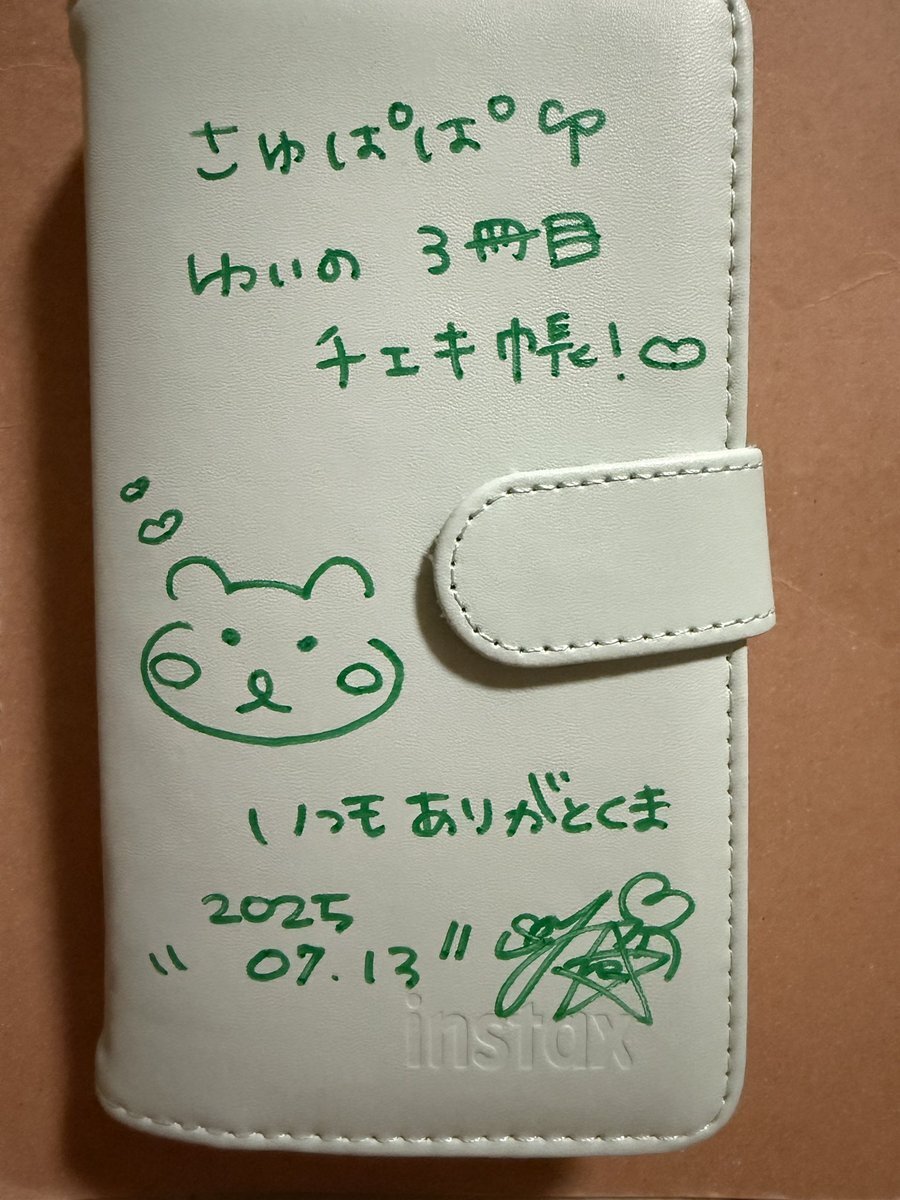 さゅぱぱ
ゆいの 3冊目
チェキ帳!♡
いつもありがとくま
2025
" 07.13 "
instax